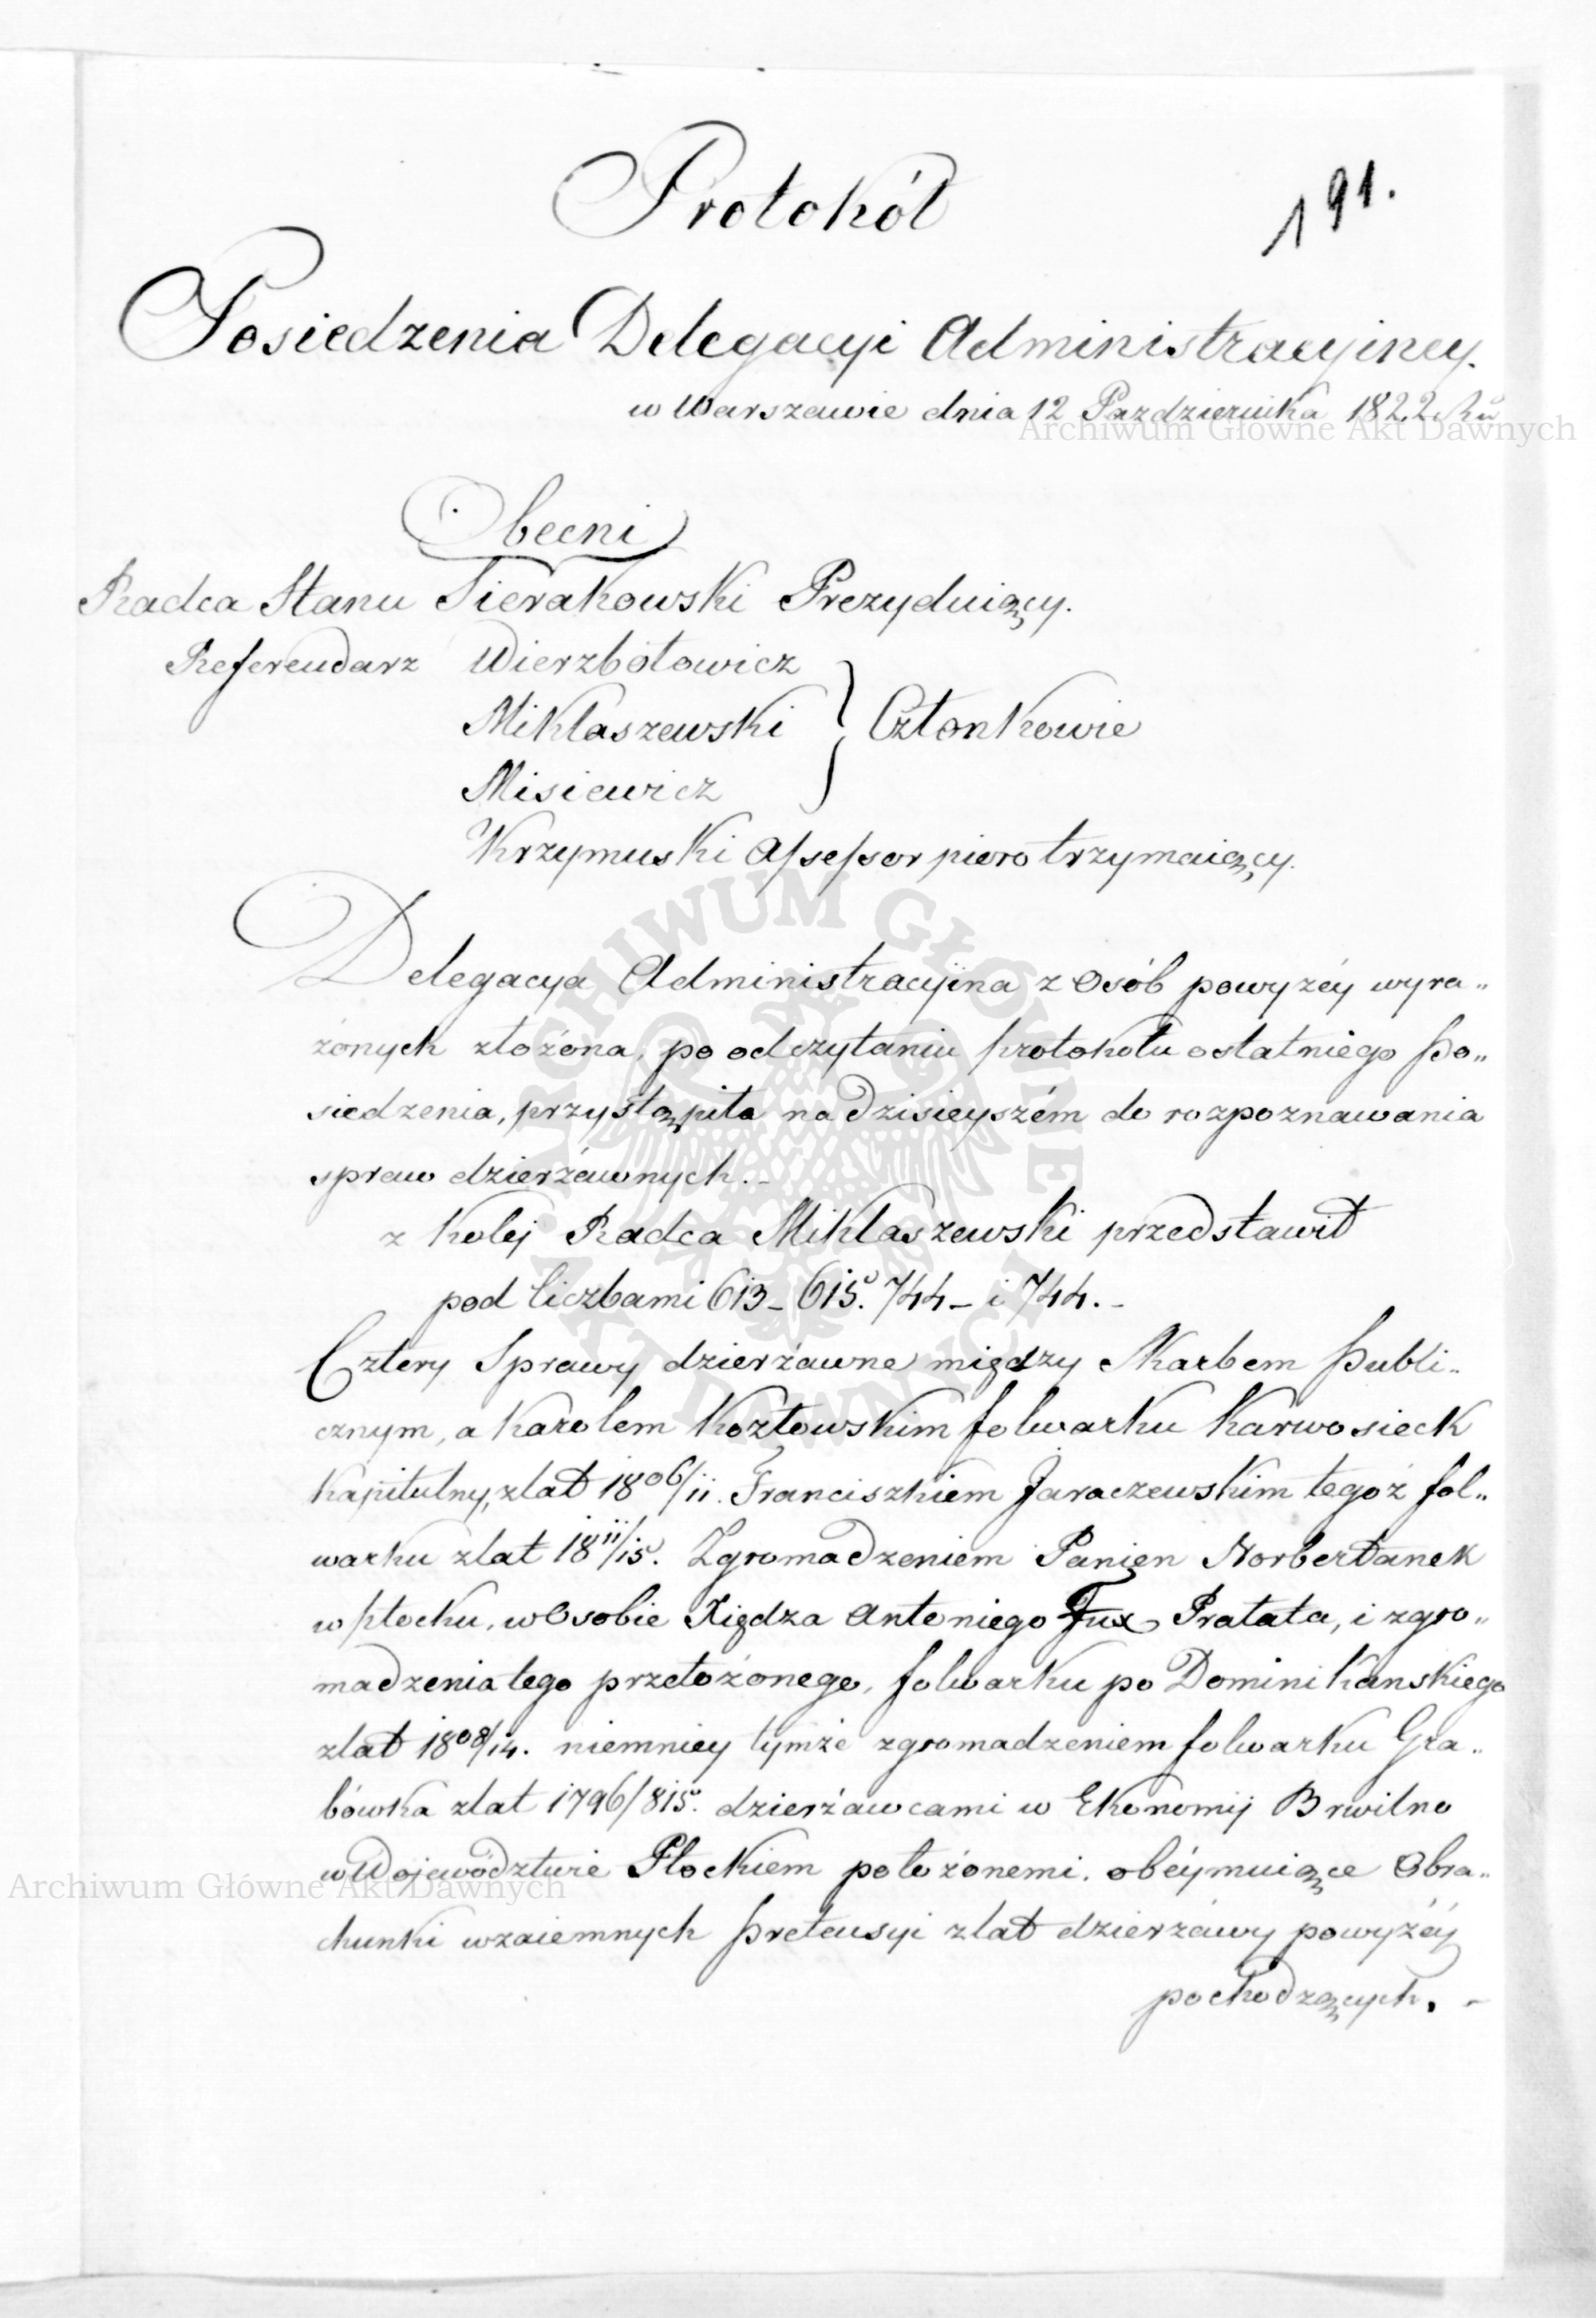 Protokół
191.
Posiedzenia Delegacyi Administracyiney.
w Warszawie dnia 12 Pazdziernika 1822 Rũ
Archiwum Główne Akt Dawnych
Obecni
Radca Stanu Sierakowski Prezyduiący.
Referendarz Wierzbołowicz
Miklaszewski } Członkowie
Misiewicz
Krzymuski Assessor pioro trzymaiący.
Delegacya Administracyina z Osób powyżéy wyra„
żonych złożona, po odczytaniu protokołu ostatniego Po„
siedzenia, przystąpiła na dzisieyszém do rozpoznawania
spraw dzierżawnych._
z kolej Radca Miklaszewski przedstawił
pod liczbami 613_ 615. 744_ i 744._
Cztery Sprawy dzierżawne między Skarbem Publi„
cznym, a Karolem Kozłowskim folwarku Karwosieck
Kapitulny, z lat 1806/11. Franciszkiem Jaraczewskim tegoż fol„
warku z lat 1811/15. Zgromadzeniem Panien Norbertanek
w Płocku, w Osobie Xiędza Antoniego Fux Prałata, i zgro„
madzenia tego przełożonego, folwarku po Dominikanskiego
z lat 1808/14. niemniey tymże zgromadzeniem folwarku Gra„
bówka z lat 1796/815. dzierżawcami w Ekonomij Brwilno
w Województwie Płockiem położonemi. obéymuiące Obra„
Archiwum Główne Akt Dawnych
chunki wzaiemnych Pretensyi z lat dzierżawy powyżéy
pochodzących. _
ARCHIWUM GŁÓWNE AKT DAWNYCH